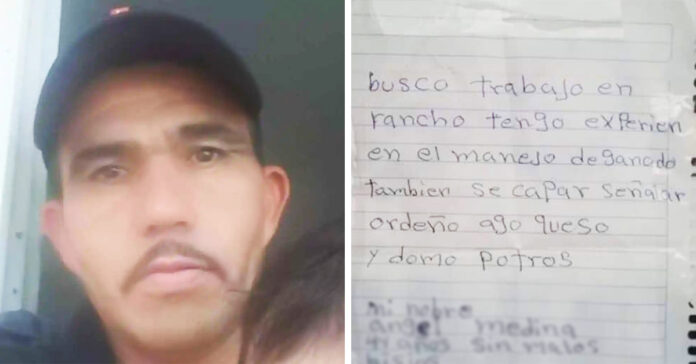 busco trabajo en
rancho tengo experien
en el manejo de ganado
tambien se capar señalar
ordeño ago queso
y domo potros
mi nobre
angel medina
41 años sin malos